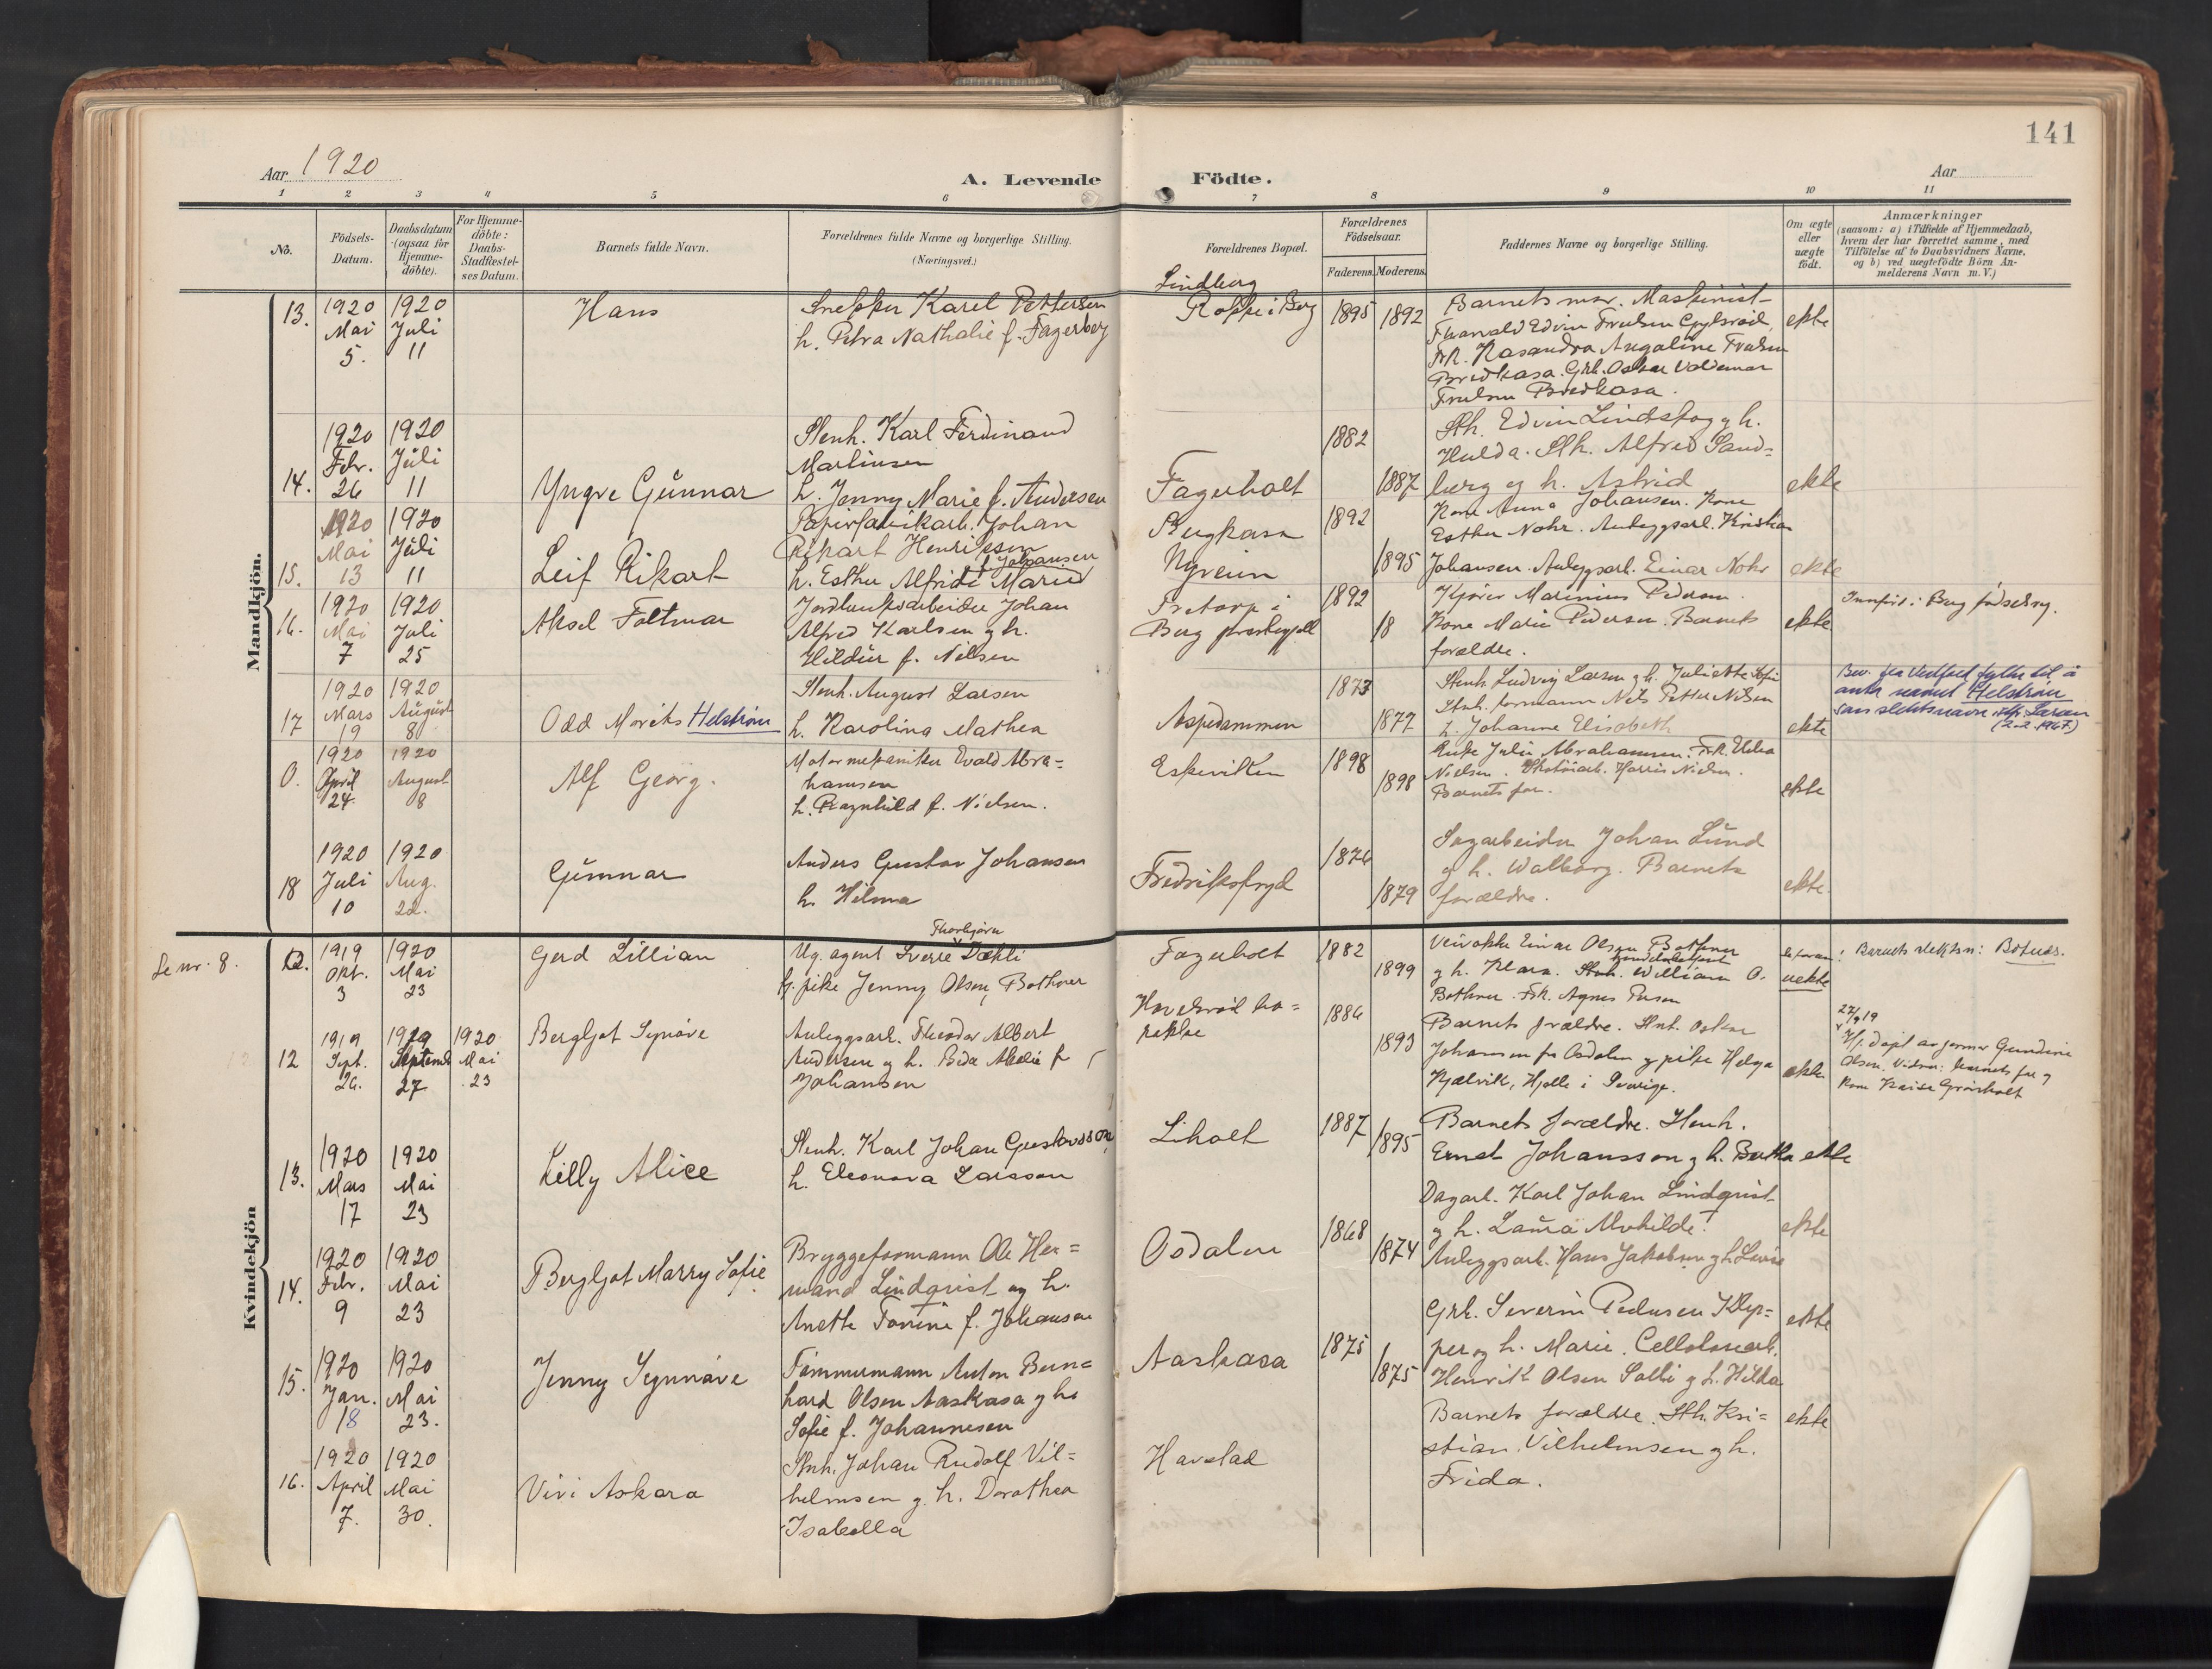 141
Aar 1920
A. Levende
Födte.
Aar
1 2 3 4 5 6 7 8 9 10 11
No.
Födsels-
Datum.
Daabsdatum
(ogsaa for
Hjemme-
döbte).
For Hjemme-
döbte:
Daabs-
Stadfæstel-
ses Datum.
Barnets fulde Navn.
Forældrenes fulde Navne og borgerlige Stilling.
(Næringsvei.)
Forældrenes Bopæl.
Forældrenes
Födselsaar.
Faderens. Moderens.
Faddernes Navne og borgerlige Stilling.
Om ægte
eller
uægte
födt.
Anmærkninger
(saasom: a) i Tilfælde af Hjemmedaab,
hvem der har forrettet samme, med
Tilföielse af to Daabsvidners Navne,
og b) ved uægtefödte Börn An-
melderens Navn m. V.)
Mandkjön.
13.
1920
Mai
5.
1920
Juli
11
Hans
Snekker Karel Pettersen
h. Petra Nathalie f. Fagerberg
Lindberg
Rokke i Berg
1895
1892
Barnets mor. Maskinist
Edvin
Kasandra
Bredkasa. Grb. Oskar Valdemar
Bredkasa.
ekte
14.
1920
Febr.
26
1920
Juli
11
Yngve Gunnar
Stenh. Karl Ferdinand
Martinsen
h. Jenny Marie f. Andersen
Fagerholt
1882
1887
Sth. Edvin Lindskog og h.
Hulda. Sth. Alfred Sand=
berg og h. Astrid
ekte
15.
1920
Mai
13
1920
Juli
11
Leif Rikart
Papirfabrikarb. Johan
Rikart Henriksen
h. Esther Alfride Marie
f. Johansen
Nyveien
1892
1895
Kone Anna Johansen. Kone
Esther Nohr. Anleggsarb. Kristian
Johansen. Anleggsarb. Einar Nohr
ekte
16.
1920
Mai
7
1920
Juli
25
Aksel Foltmar
Jordbruksarbeider Johan
Alfred Karlsen og h.
Hildur f. Nilsen
Berg prestegjell
1892
18
Kjører Marinius Pedersen.
Kone Marie Pedersen. Barnets
forældre.
ekte
Innført i Berg fødselsreg.
17
1920
Mars
19
1920
August
8
Odd Moriks Helström
Stenh. August Larsen
h. Karolina Mathea
Aspedammen
1873
1877
Stenh. Ludvig Larsen og h. Juliette Sofie
Stenh. formann Nils Petter Nilsen
h. Johanne Elisabeth
ekte
Bev. fra Vestfold fylke til å
anta navnet Helström
som slektsnavn istf. Larsen
(2-2. 1967)
0.
1920
April
24
1920
August
8
Alf Georg.
Motormekaniker Evald Abra=
hamsen
h. Ragnhild f. Nielsen.
Eskeviken
1898
1898
Enke Julie Abrahamsen. Frk.
Nielsen. Harris Nielsen.
Barnets far.
ekte
18
1920
Juli
10
1920
Aug.
22.
Gunnar
Anders Gustav Johansen
h. Hilma
Fredriksfryd
1876
1879
Sagarbeider Johan Lund
og h. Walborg. Barnets
forældre.
ekte.
Kvindekjön
Se nr. 8.
1919
Okt.
3
1920
Mai
23
Gerd Lillian
Thorbjørn
Ug. agent Sverre Dæhli
pike Jenny Olsen, Bothner
Fagerholt
1882
1899
Veivokter Einar Olsen Bothner
og h. Klara. Stenh. William O.
Bothner. Frk. Agnes
uekte
Barnets slektsn: Botners.
12
1919
Sept.
26.
1919
Septemb
27
1920
Mai
23
Bergljot Synøve
Anleggsarb. Theodor Albert
Andersen og h. Beda Alvilie f
Johansen
1886
1893
Barnets forældre. Stenh. Oskar
Johansen fra Osdalen og pike Helga
Kjælvik, Hjelle i Sverige.
ekte
27/9 19
Hj. døpt av jormor Gundine
Olsen. Vidner: barnets far og
kone Kaisa Grönholt
13.
1920
Mars
17
1920
Mai
23
Lilly Alice
Stenh. Karl Johan Gustavsson,
h. Eleonora Larsson
Liholt
1887
1895
Barnets forældre. Stenh.
Ernst Johansson og h. Bertha
ekte
14.
1920
Febr.
9
1920
Mai
23
Bergljot Marry Sofie
Bryggeformann Ole Her=
mand Lindqvist og h.
Anette Torrine f. Johansen
Osdalen
1868
1874
Dagarb. Karl Johan Lindqvist
og h. Laura Alvhilde.
Anleggsarb. Hans Jakobsen og h. Lovise
ekte
15.
1920
Jan.
18
1920
Mai
23.
Jenny Synnøve
Tömmermann Anton Bern=
hard Olsen Aaskasa og h.
Sofie f. Johannesen
Aaskasa
1875
1875
Grb. Severin Pedersen Klep=
per og h. Marie. Cellolosearb.
Henrik Olsen Solli og h. Hilda
ekte
16.
1920
April
7.
1920
Mai
30.
Vivi Askara
Stenh. Johan Rudolf Vil=
helmsen og h. Dorothea
Isabella
Havelad
Barnets forældre. Sth. Kri=
stian Vilhelmsen og h.
Frida.
ekte